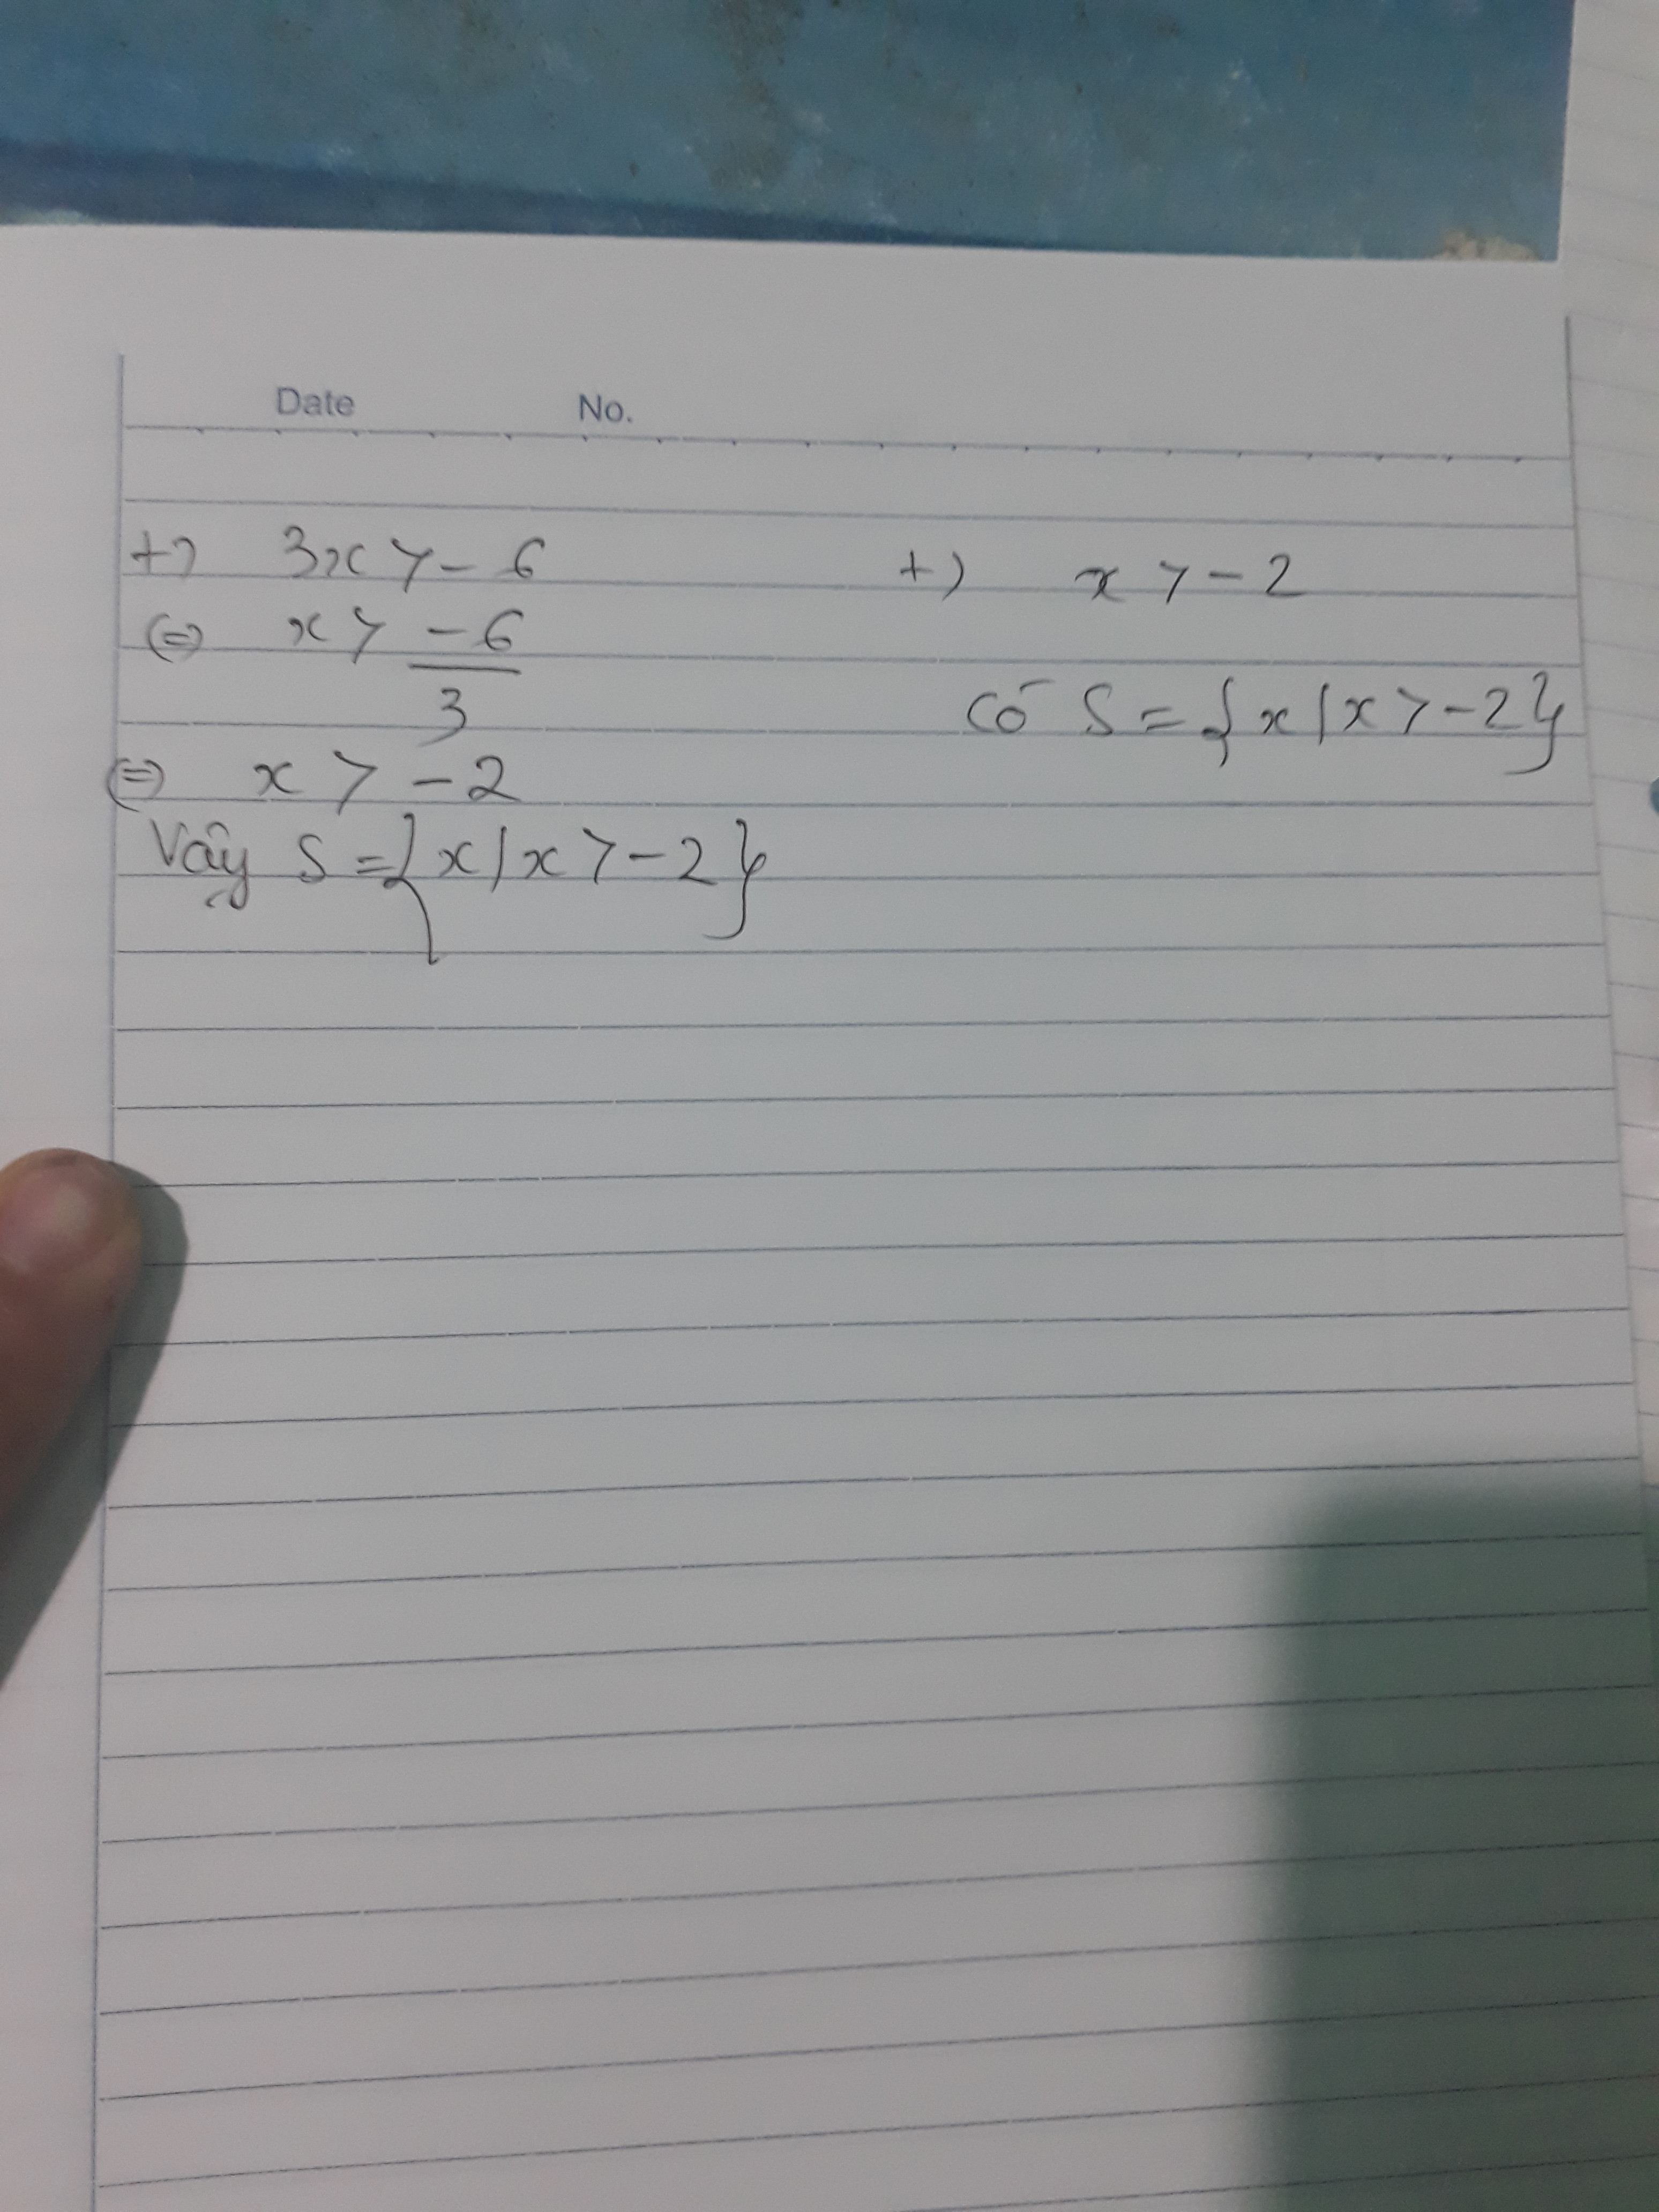 Date No.
+) 3x > - 6
(=) x > - 6
3
(=) x > - 2
Vậy S = { x / x > - 2 }
+) x > - 2
có S = { x / x > - 2 }